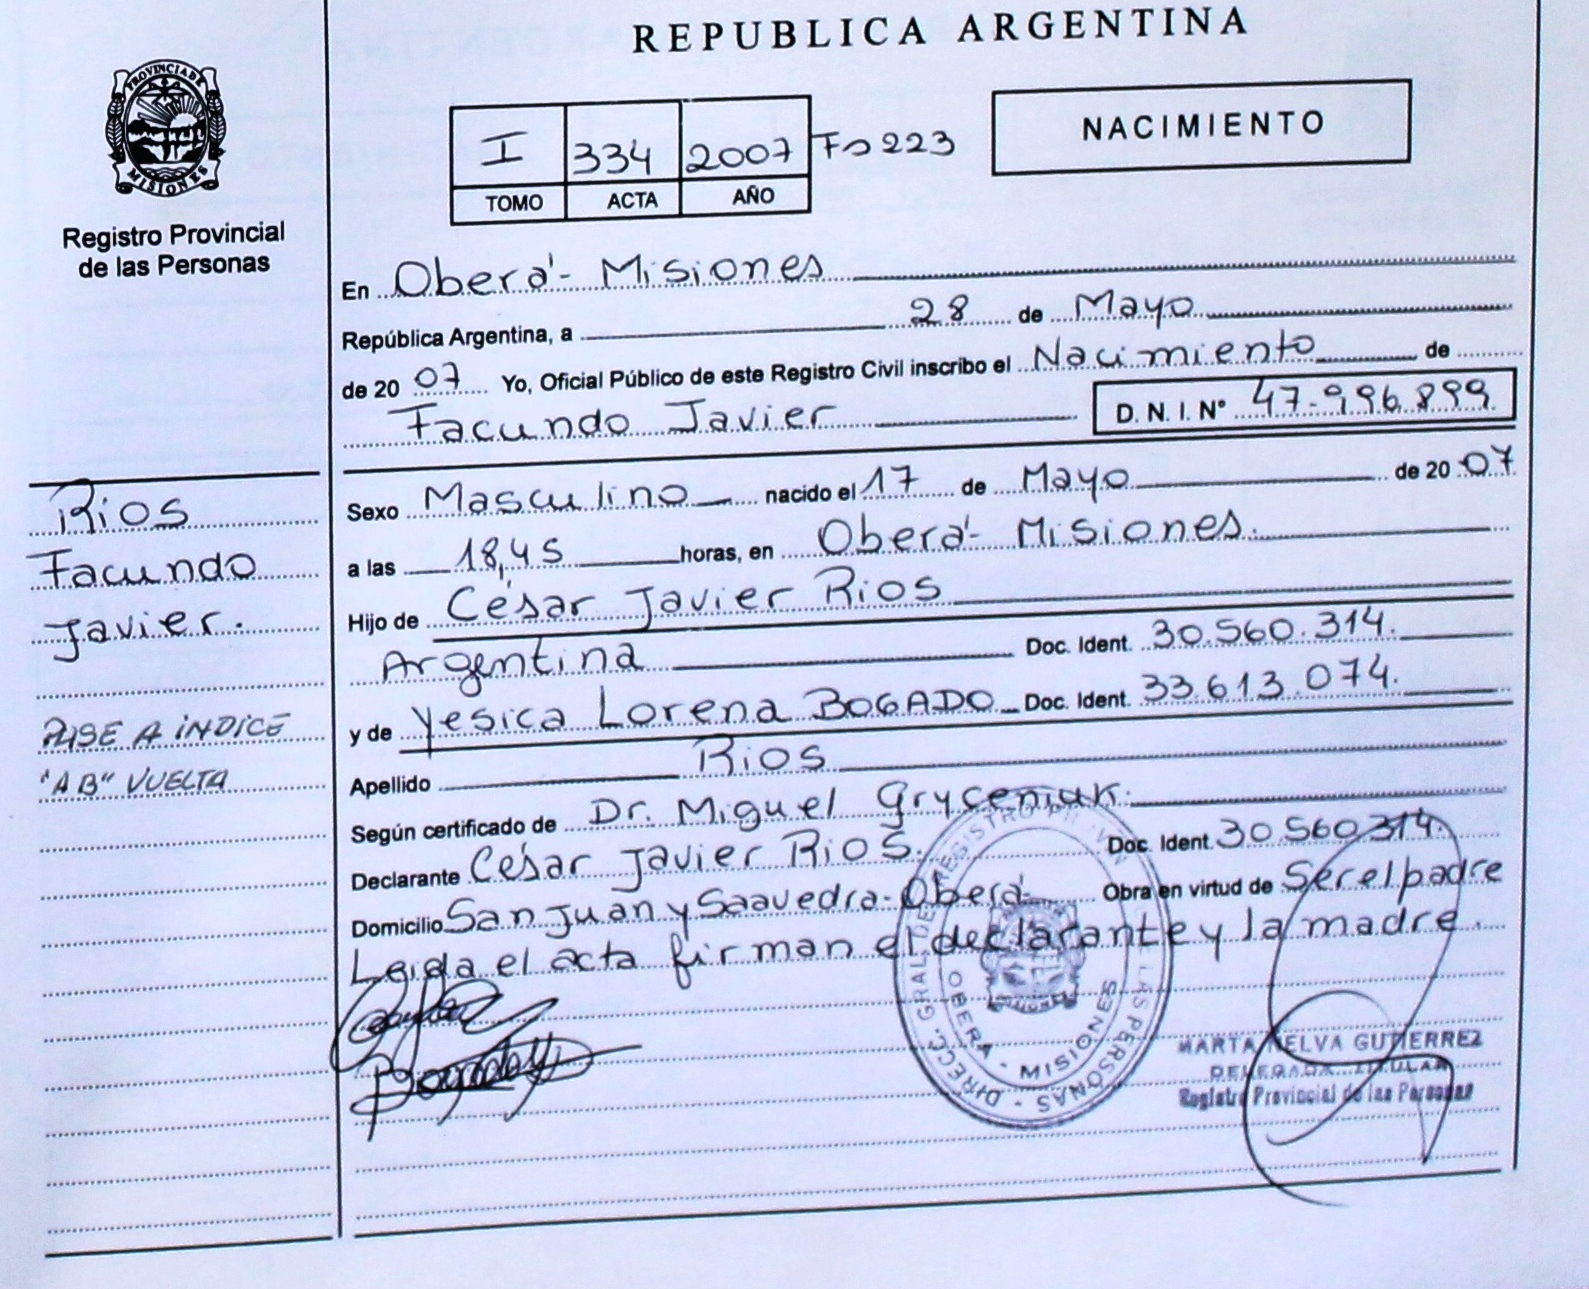 REPUBLICA ARGENTINA
PROVINCIA DE
MISIONES
Registro Provincial
de las Personas
I 334 2007 Fº 223
TOMO ACTA AÑO
NACIMIENTO
En Oberá - Misiones
República Argentina, a 28 de Mayo
de 20 07 Yo, Oficial Público de este Registro Civil inscribo el Nacimiento de
Facundo Javier D. N. I. Nº 47.996.899
Rios
Facundo
Javier.
PASE A INDICE
"AB" VUELTA
Sexo Masculino nacido el 17 de Mayo de 20 07
a las 18,45 horas, en Oberá - Misiones.
Hijo de César Javier Rios
Argentina Doc. Ident. 30.560.314.
y de Yesica Lorena BOGADO Doc. Ident. 33.613.074.
Apellido Rios
Según certificado de Dr. Miguel Gryceniuk.
Declarante César Javier Rios. Doc. Ident. 30.560.314.
Domicilio San Juan y Saavedra - Oberá Obra en virtud de Ser el padre
Leida el acta firman el declarante y la madre.
DIRECC. GRAL. DE REGISTRO PROVIN DE LAS PERSONAS
OBERA - MISIONES
MARTA NELVA GUTIERREZ
DELEGADA TITULAR
Registro Provincial de las Personas